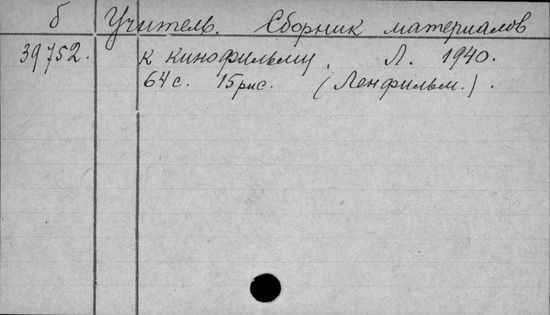 б Учитель. Сборник материалов
39752. к кинофильму. Л. 1940.
64 с. 15 рис. (Ленфильм.).